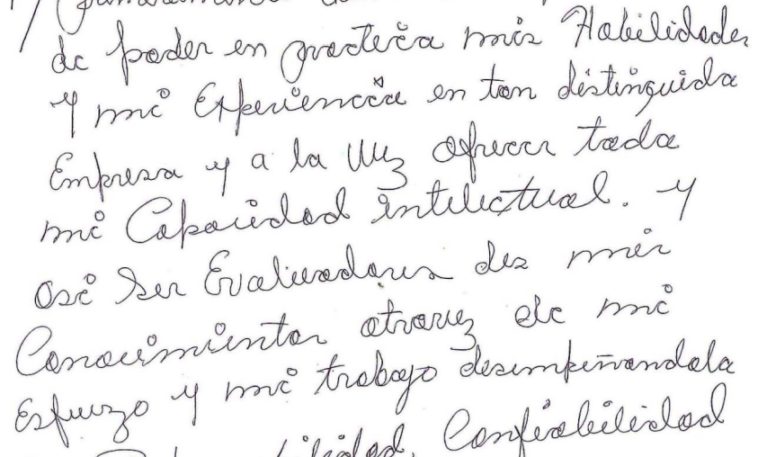 de poder en practica mis Habilidades
y mi Experiencia en tan distinguida
Empresa y a la vez ofrecer toda
mi Capacidad intelectual. y
asi ser Evaluadores des mis
Conocimientos atravez de mi
Esfuerzo y mi trabajo desempeñandola
Confiabilidad